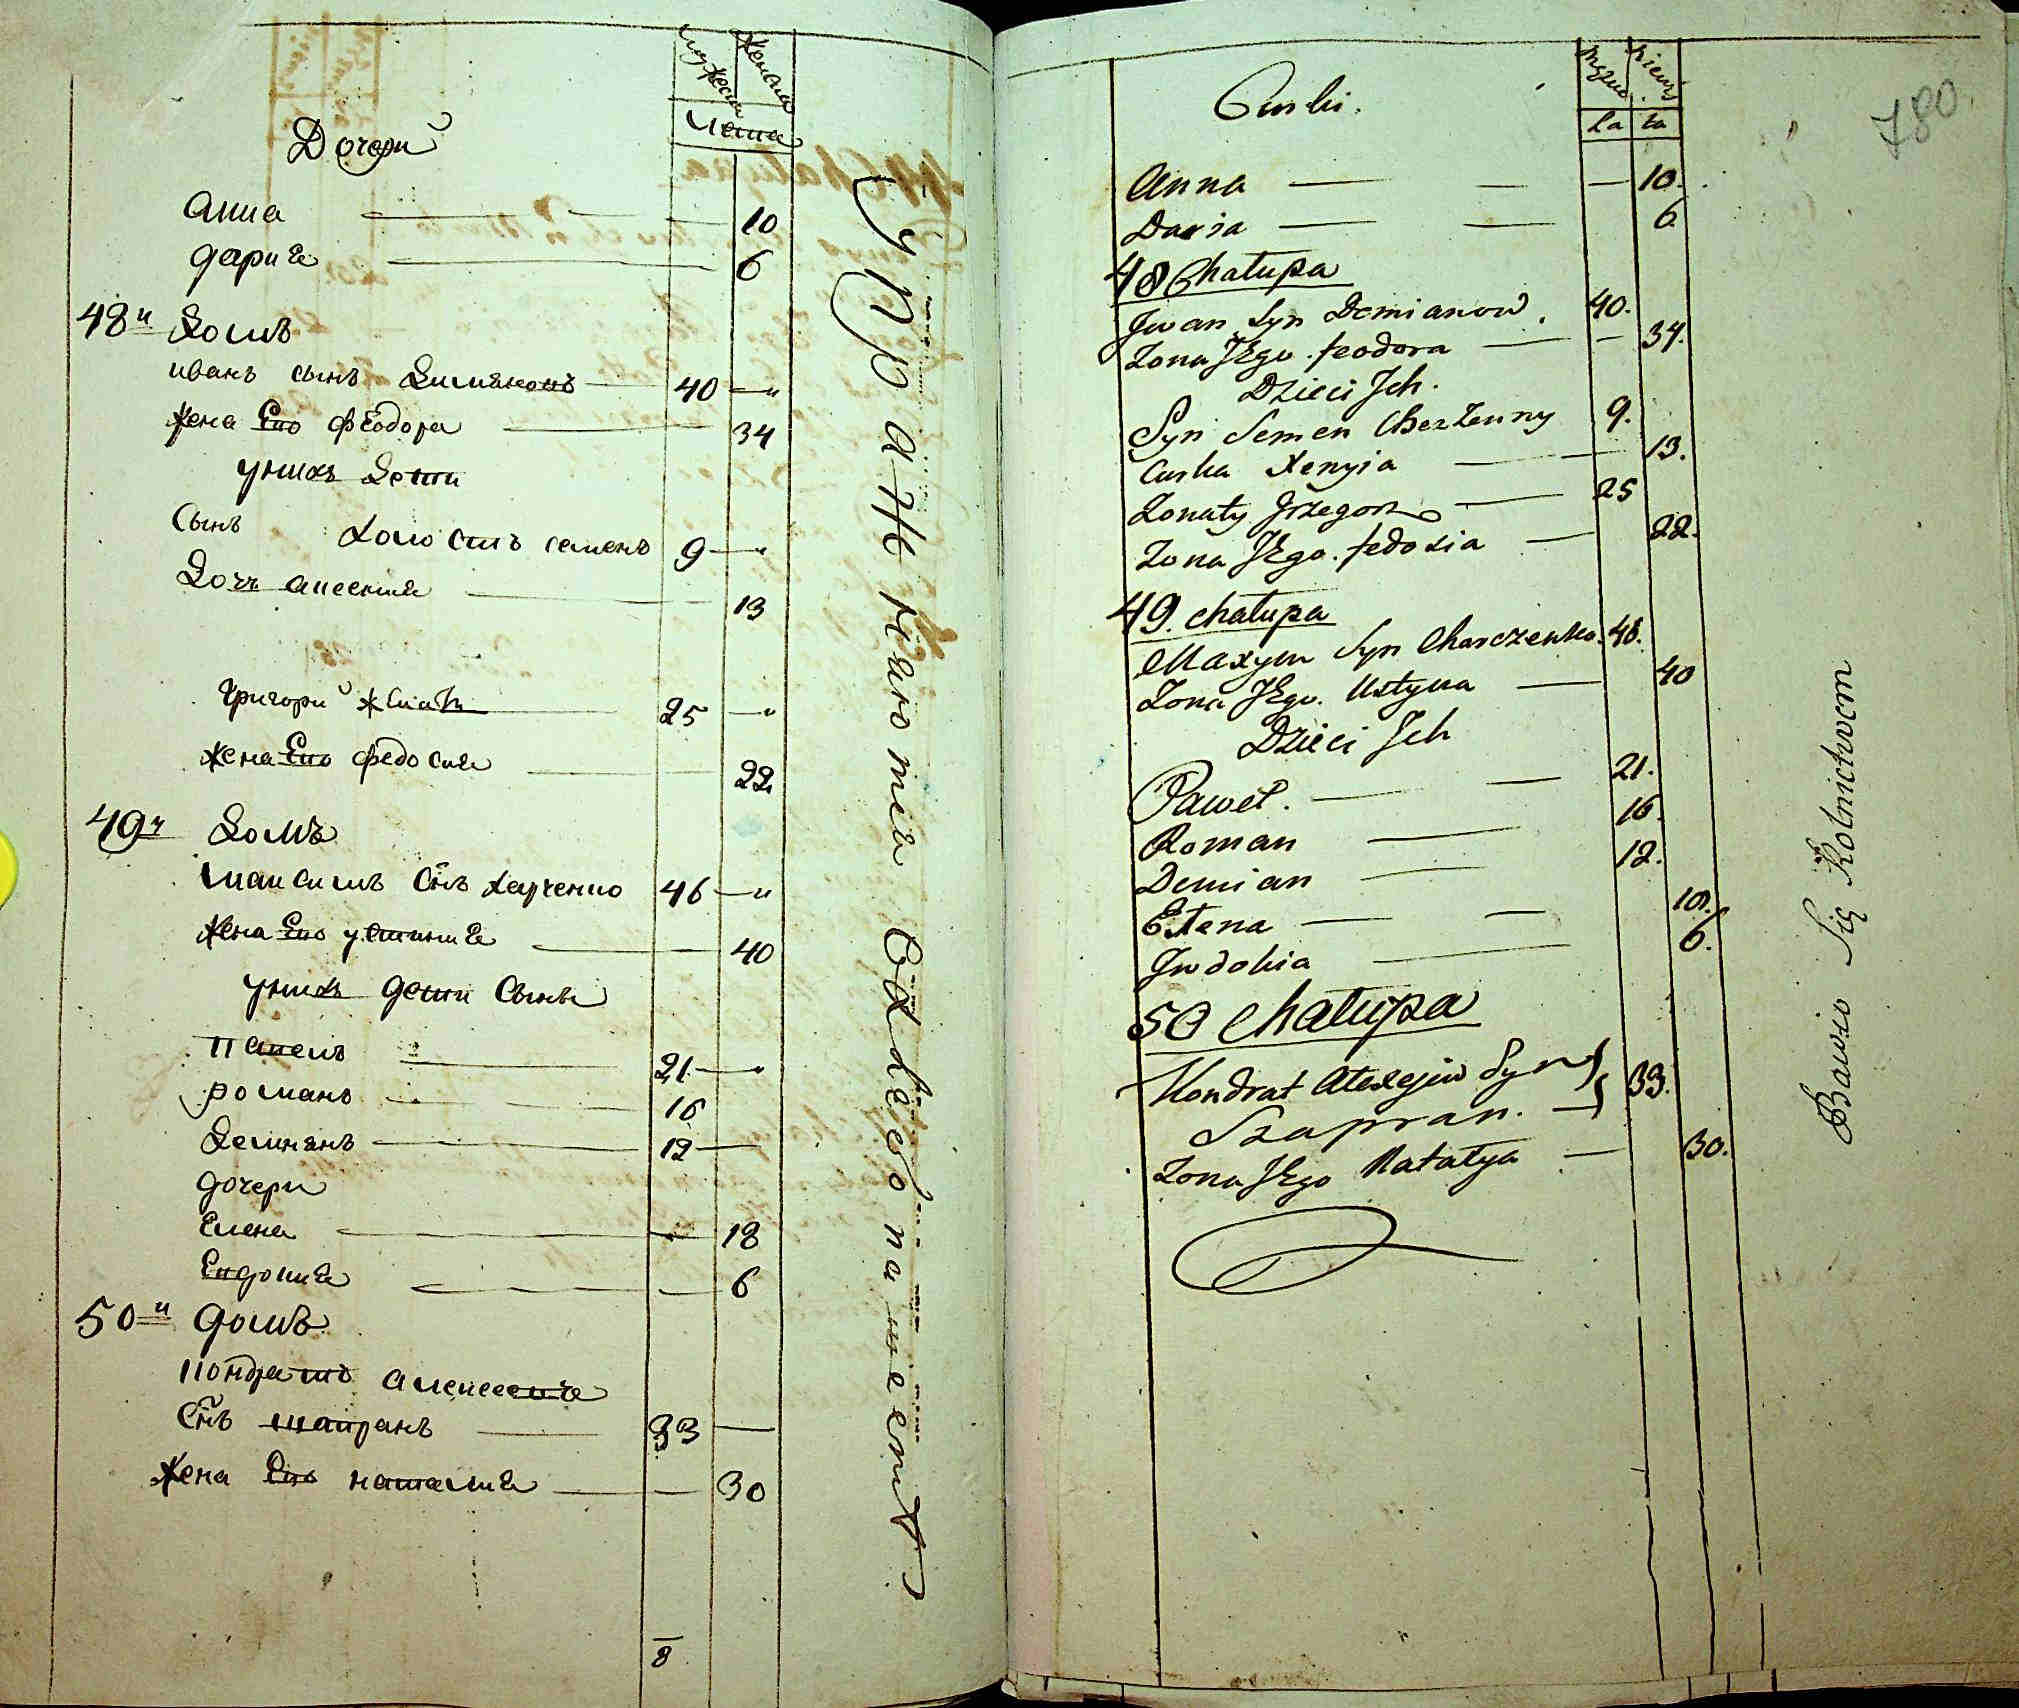 мужеска женска
лета
Дочери
анна 10
дария 6
48й домъ
иванъ сынъ димяновъ 40 —"
жена Его феодора 34
у нихъ дети
Сынъ холостъ семенъ 9 —"
дочь аксения 13
григори жинатъ 25 —"
жена Его федосия 22
49й домъ
максимъ снъ харченко 46 —"
жена Его устиния 40
у нихъ дети Сыны
павелъ 21 —"
романъ 16
демиянъ 12 —
дочери
Елена 18
Евдокия 6
50й домъ
кондратъ алексеевъ
снъ шапранъ 33 —
жена Его наталия 30
8
Упражняются въ хлебопашестве
780
Męzka Niewś
La ta
Curki.
Anna — — — 10.
Daria — — 6
48 Chałupa
Jwan Syn Demianow. 40.
Zona JEgo. feodora — — 34.
Dzieci Jch.
Syn Semen Bezżenny 9.
Curka Xenyia — — 13.
Zonaty Grzegorz — 25
Zona JEgo. fedosia — 22.
49. chałupa
Maxym Syn Charczenko. 46.
Zona JEgo. Ustyna — 40
Dzieci Jch
Paweł. — — 21.
Roman — 16.
Demian — 12.
Ełena — — 18.
Jwdokia — 6.
50 chałupa
Kondrat Alexejew Syn } 33.
Szapran. —
Zona JEgo Natałya — 30.
Bawio Się Rolnictwem